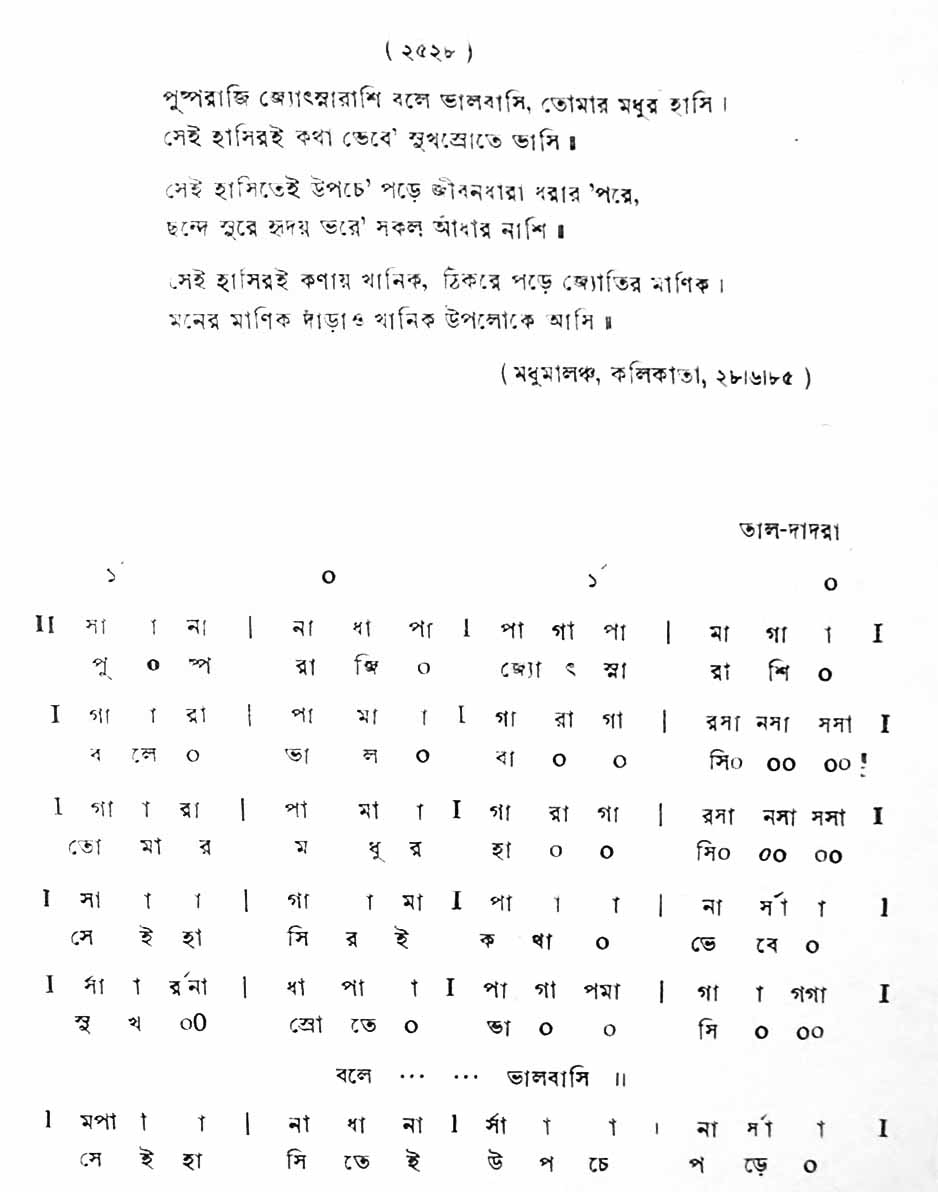 ( ২৫২৮ )
পুষ্পরাজি জ্যোৎস্নারাশি বলে ভালবাসি, তোমার মধুর হাসি ।
সেই হাসিরই কথা ভেবে' সুখস্রোতে ভাসি ॥
সেই হাসিতেই উপচে' পড়ে জীবনধারা ধরার 'পরে,
ছন্দে সুরে হৃদয় ভরে' সকল আঁধার নাশি ॥
সেই হাসিরই কণায় খানিক, ঠিকরে পড়ে জ্যোতির মাণিক ।
মনের মাণিক দাঁড়াও খানিক উপলোকে আসি ॥
( মধুমালঞ্চ, কলিকাতা, ২৮।৬।৮৫ )
তাল-দাদরা
১´ ০ ১´ ০
II সা া না | না ধা পা I পা গা পা | মা গা া I
পু ০ ষ্প রা জি ০ জ্যো ৎ স্না রা শি ০
I গা া রা | পা মা া I গা রা গা | রসা নসা সসা I
ব লে ০ ভা ল ০ বা ০ ০ সি০ ০০ ০০ !
I গা া রা | পা মা া I গা রা গা | রসা নসা সসা I
তো মা র ম ধু র হা ০ ০ সি০ ০০ ০০
I সা া া | গা া মা I পা া া | না র্সা া I
সে ই হা সি র ই ক থা ০ ভে বে ০
I র্সা া র্রনা | ধা পা া I পা গা পমা | গা া গগা I
সু খ ০০ স্রো তে ০ ভা ০ ০ সি ০ ০০
বলে ... ... ভালবাসি ॥
I মপা া া | না ধা না I র্সা া া । না র্সা া I
সে ই হা সি তে ই উ প চে প ড়ে ০